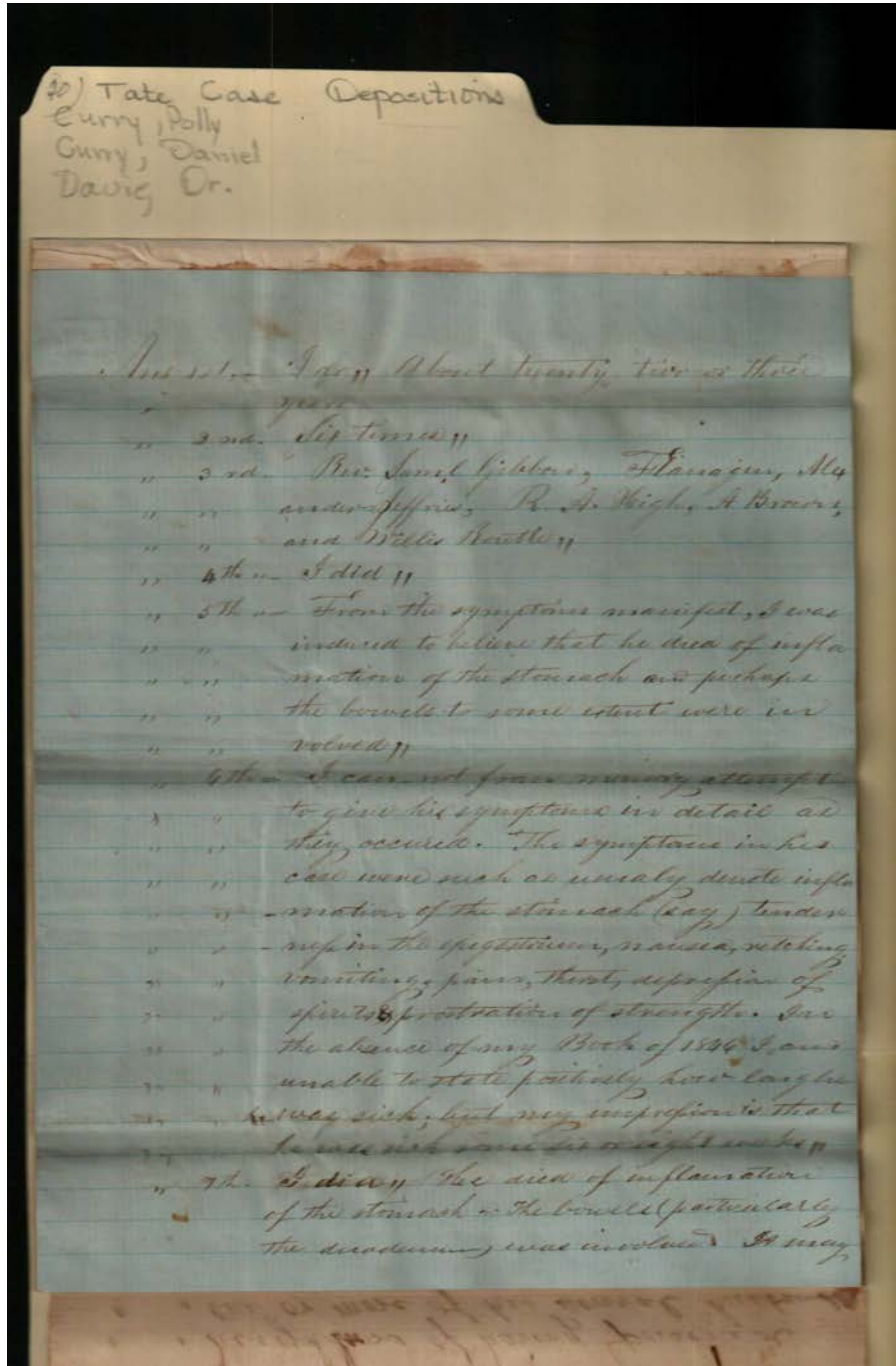 20) Tate Case Depositions
Curry, Polly
Curry, Daniel
Davis, Dr.
Ans 1st.– I do,, About twenty two or three
" years
" 2nd. Six times,,
" 3rd. Rev. Saml. Gibbon, Flanagin, Alex
" " ander Jeffries, R. A. High, A Brown,
" " and Willis Routte,,
" 4th "– I did,,
" 5th "– From the symptoms manifest, I was
" " induced to believe that he died of infla
" " mation of the stomach and perhaps
" " the bowels to some extent were in
" " volved,,
" 6th – I can not from memory attempt
" " to give his symptoms in detail as
" " they occured. The symptoms in his
" " case were such as usualy denote infla
" " -mation of the stomach (say) tender
" " -ness in the epigastrium, nausea, retching
" " vomiting, pain, thirst, depression of
" " spirits & prostration of strength. In
" " the absence of my Book of 1846 I am
" " unable to state positively how long he
" " was sick, but my impression is that
" " he was sick some six or eight weeks,,
" 7th. I did,, He died of inflamation
of the stomach & the bowels (particularly
the duodenum) was involved It may